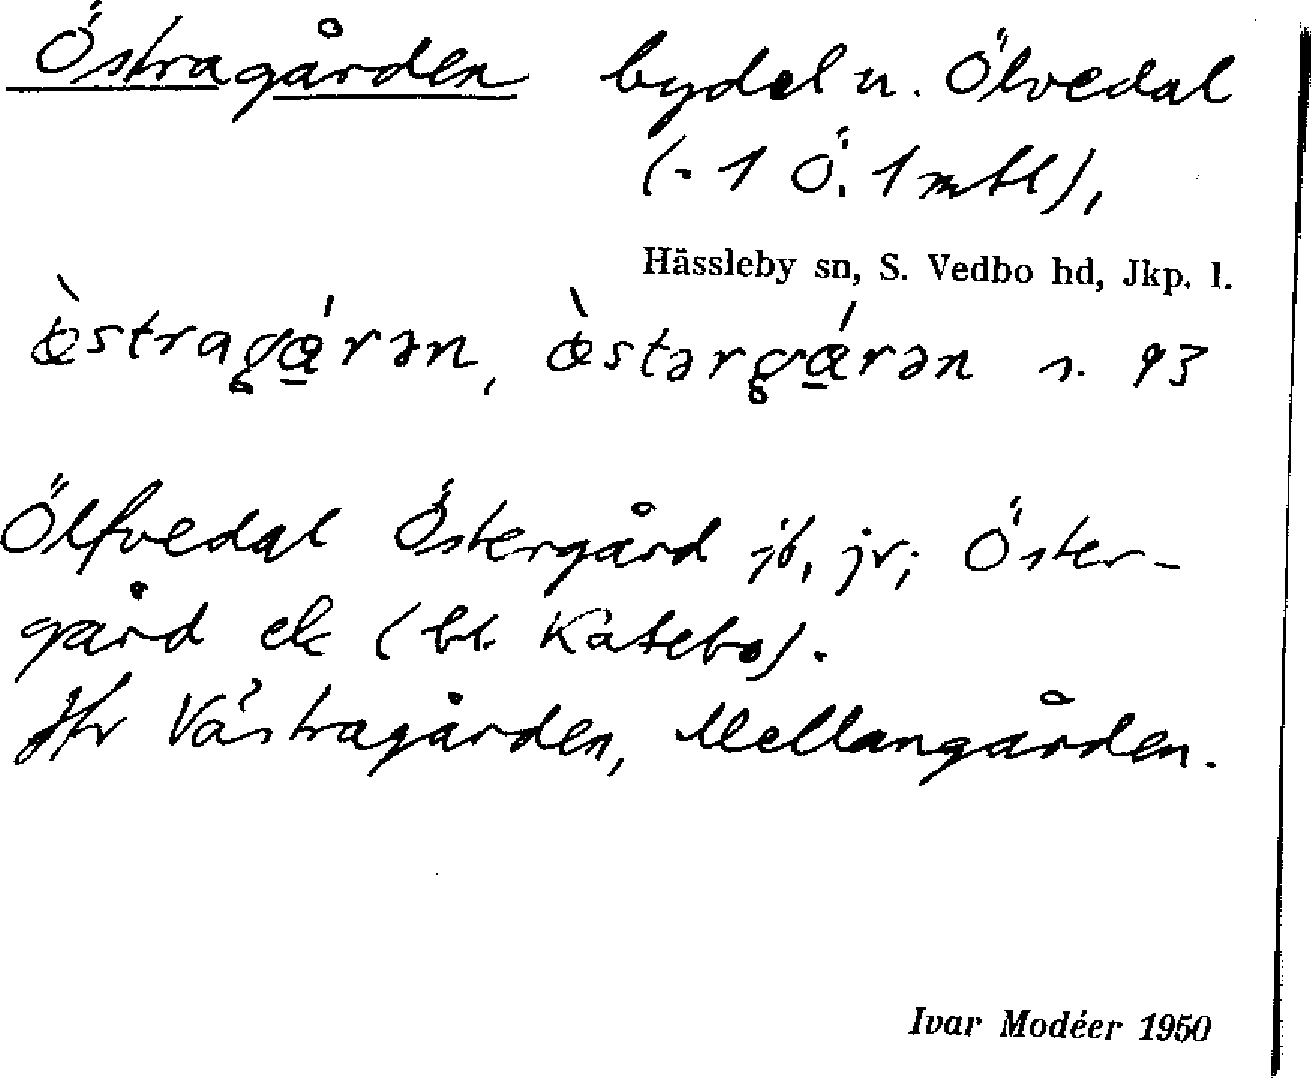 Östragården bydel n. Ölvedal
(-1 Ö. 1 mtl),
Hässleby sn, S. Vedbo hd, Jkp. l.
œ̀stragœ́rən, œ̀stərgœ́rən s. 93
Ölfvedal Östergård jb, jr; Öster-
gård ek (bl. Katebo).
Jfr Västragården, Mellangården.
Ivar Modéer 1950